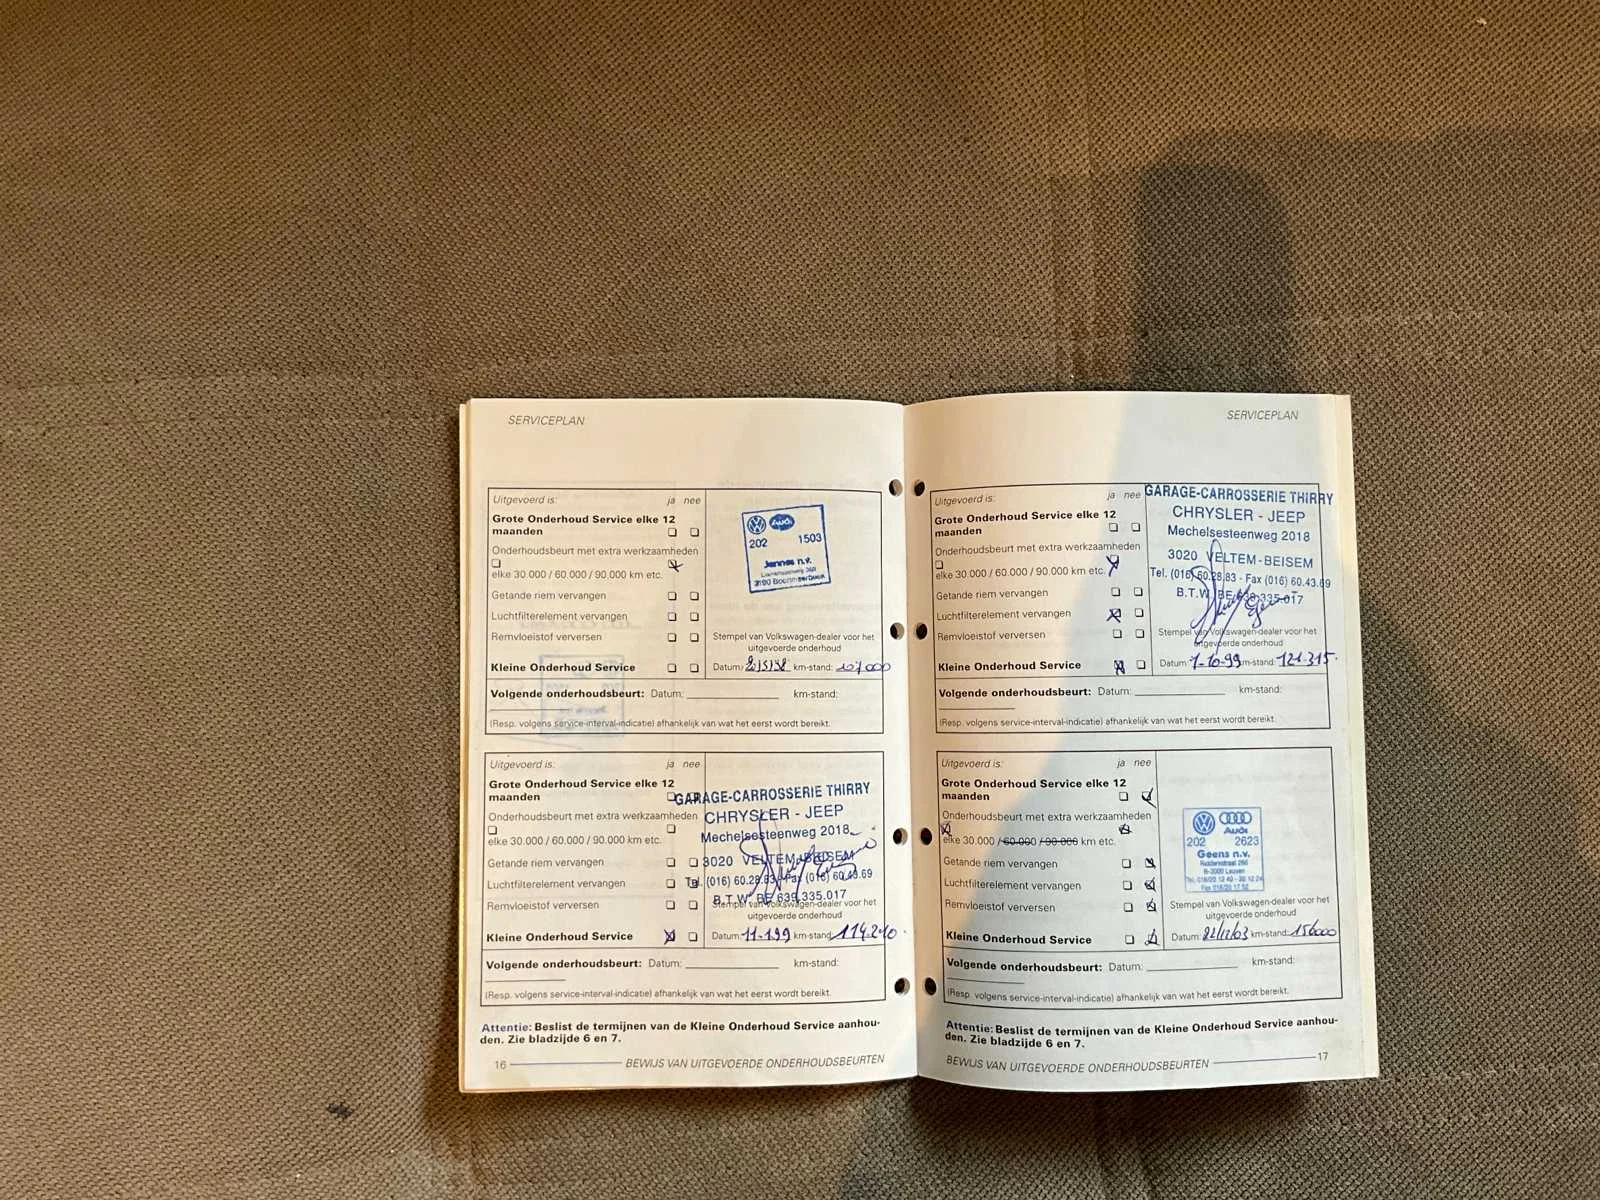 SERVICEPLAN
Uitgevoerd is: ja nee
Grote Onderhoud Service elke 12
maanden
Onderhoudsbeurt met extra werkzaamheden
elke 30.000 / 60.000 / 90.000 km etc.
Getande riem vervangen
Luchtfilterelement vervangen
Remvloeistof verversen
Kleine Onderhoud Service
Audi
202 1503
Jannes n.v.
Stempel van Volkswagen-dealer voor het
uitgevoerde onderhoud
Datum: km-stand: 107.000
Volgende onderhoudsbeurt: Datum: km-stand:
(Resp. volgens service-interval-indicatie) afhankelijk van wat het eerst wordt bereikt.
Uitgevoerd is: ja nee
Grote Onderhoud Service elke 12
maanden
Onderhoudsbeurt met extra werkzaamheden
elke 30.000 / 60.000 / 90.000 km etc.
Getande riem vervangen
Luchtfilterelement vervangen
Remvloeistof verversen
Kleine Onderhoud Service
GARAGE-CARROSSERIE THIRRY
CHRYSLER - JEEP
Mechelsesteenweg 2018
3020 VELTEM-BEISEM
Tel. (016) 60.28.83 - Fax (016) 60.43.69
B.T.W. BE 639.335.017
Stempel van Volkswagen-dealer voor het
uitgevoerde onderhoud
Datum: 11-1-99 km-stand: 114.210
Volgende onderhoudsbeurt: Datum: km-stand:
(Resp. volgens service-interval-indicatie) afhankelijk van wat het eerst wordt bereikt.
Attentie: Beslist de termijnen van de Kleine Onderhoud Service aanhou-
den. Zie bladzijde 6 en 7.
16 BEWIJS VAN UITGEVOERDE ONDERHOUDSBEURTEN
SERVICEPLAN
Uitgevoerd is: ja nee
Grote Onderhoud Service elke 12
maanden
Onderhoudsbeurt met extra werkzaamheden
elke 30.000 / 60.000 / 90.000 km etc.
Getande riem vervangen
Luchtfilterelement vervangen
Remvloeistof verversen
Kleine Onderhoud Service
GARAGE-CARROSSERIE THIRRY
CHRYSLER - JEEP
Mechelsesteenweg 2018
3020 VELTEM-BEISEM
Tel. (016) 60.28.83 - Fax (016) 60.43.69
B.T.W. BE 639.335.017
Stempel van Volkswagen-dealer voor het
uitgevoerde onderhoud
Datum: 1-10-99 km-stand: 121.315.
Volgende onderhoudsbeurt: Datum: km-stand:
(Resp. volgens service-interval-indicatie) afhankelijk van wat het eerst wordt bereikt.
Uitgevoerd is: ja nee
Grote Onderhoud Service elke 12
maanden
Onderhoudsbeurt met extra werkzaamheden
elke 30.000 / 60.000 / 90.000 km etc.
Getande riem vervangen
Luchtfilterelement vervangen
Remvloeistof verversen
Kleine Onderhoud Service
Audi
202 2623
Geens n.v.
B-3000 Leuven
Stempel van Volkswagen-dealer voor het
uitgevoerde onderhoud
Datum: km-stand: 156000
Volgende onderhoudsbeurt: Datum: km-stand:
(Resp. volgens service-interval-indicatie) afhankelijk van wat het eerst wordt bereikt.
Attentie: Beslist de termijnen van de Kleine Onderhoud Service aanhou-
den. Zie bladzijde 6 en 7.
BEWIJS VAN UITGEVOERDE ONDERHOUDSBEURTEN 17